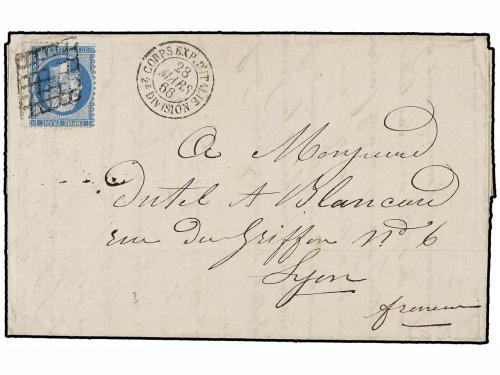 CORPS EXP. D'ITALIE 2e DIVISION
28
MARS
66
A Monsieur
Dutel A Blancard
rue du Griffon No 6
Lyon
3